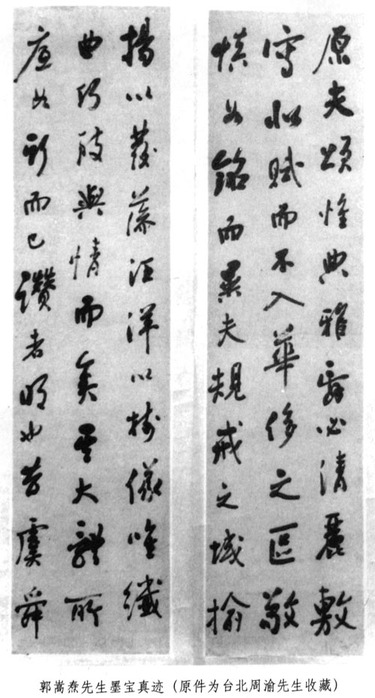 原夫頌惟典雅辭必清麗敷
寫似賦而不入華侈之區敬
慎如銘而異夫規戒之域揄
揚以發藻汪洋以樹儀唯纖
曲巧致與情而變其大體所
底如斯而已讚者明也昔虞舜
郭嵩焘先生墨宝真迹（原件为台北周渝先生收藏）